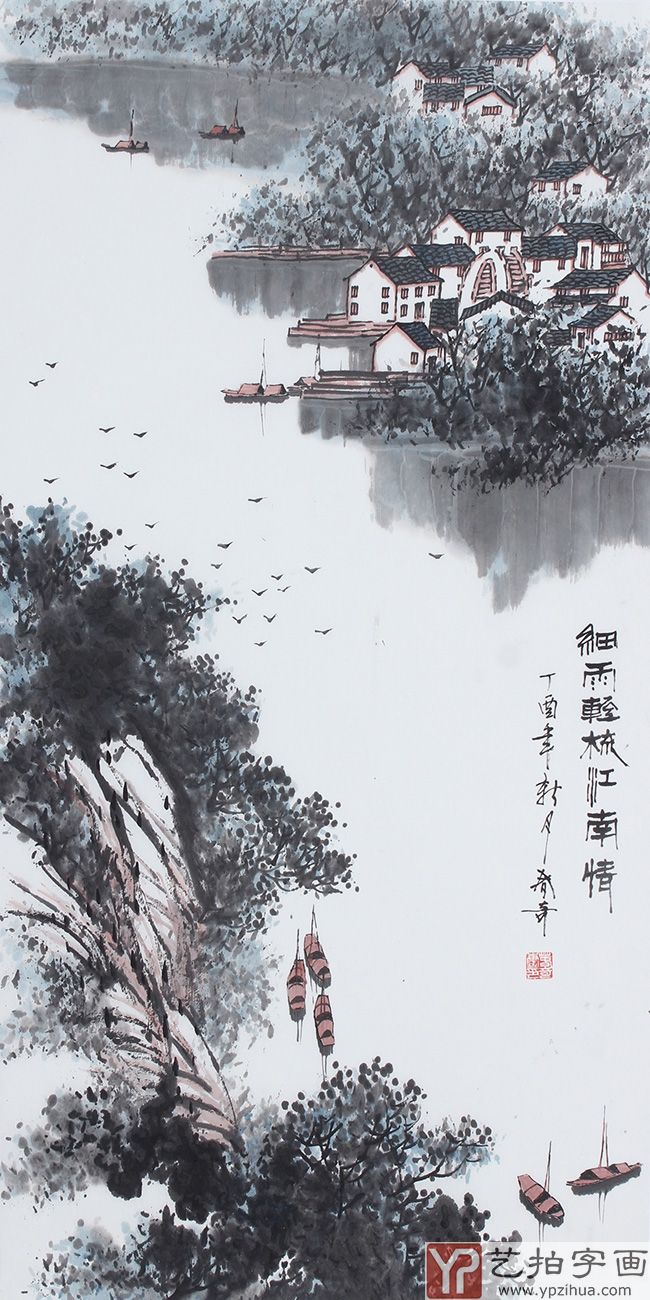 細雨輕梳江南情
丁酉年新月
YP 艺拍字画
www.ypzihua.com